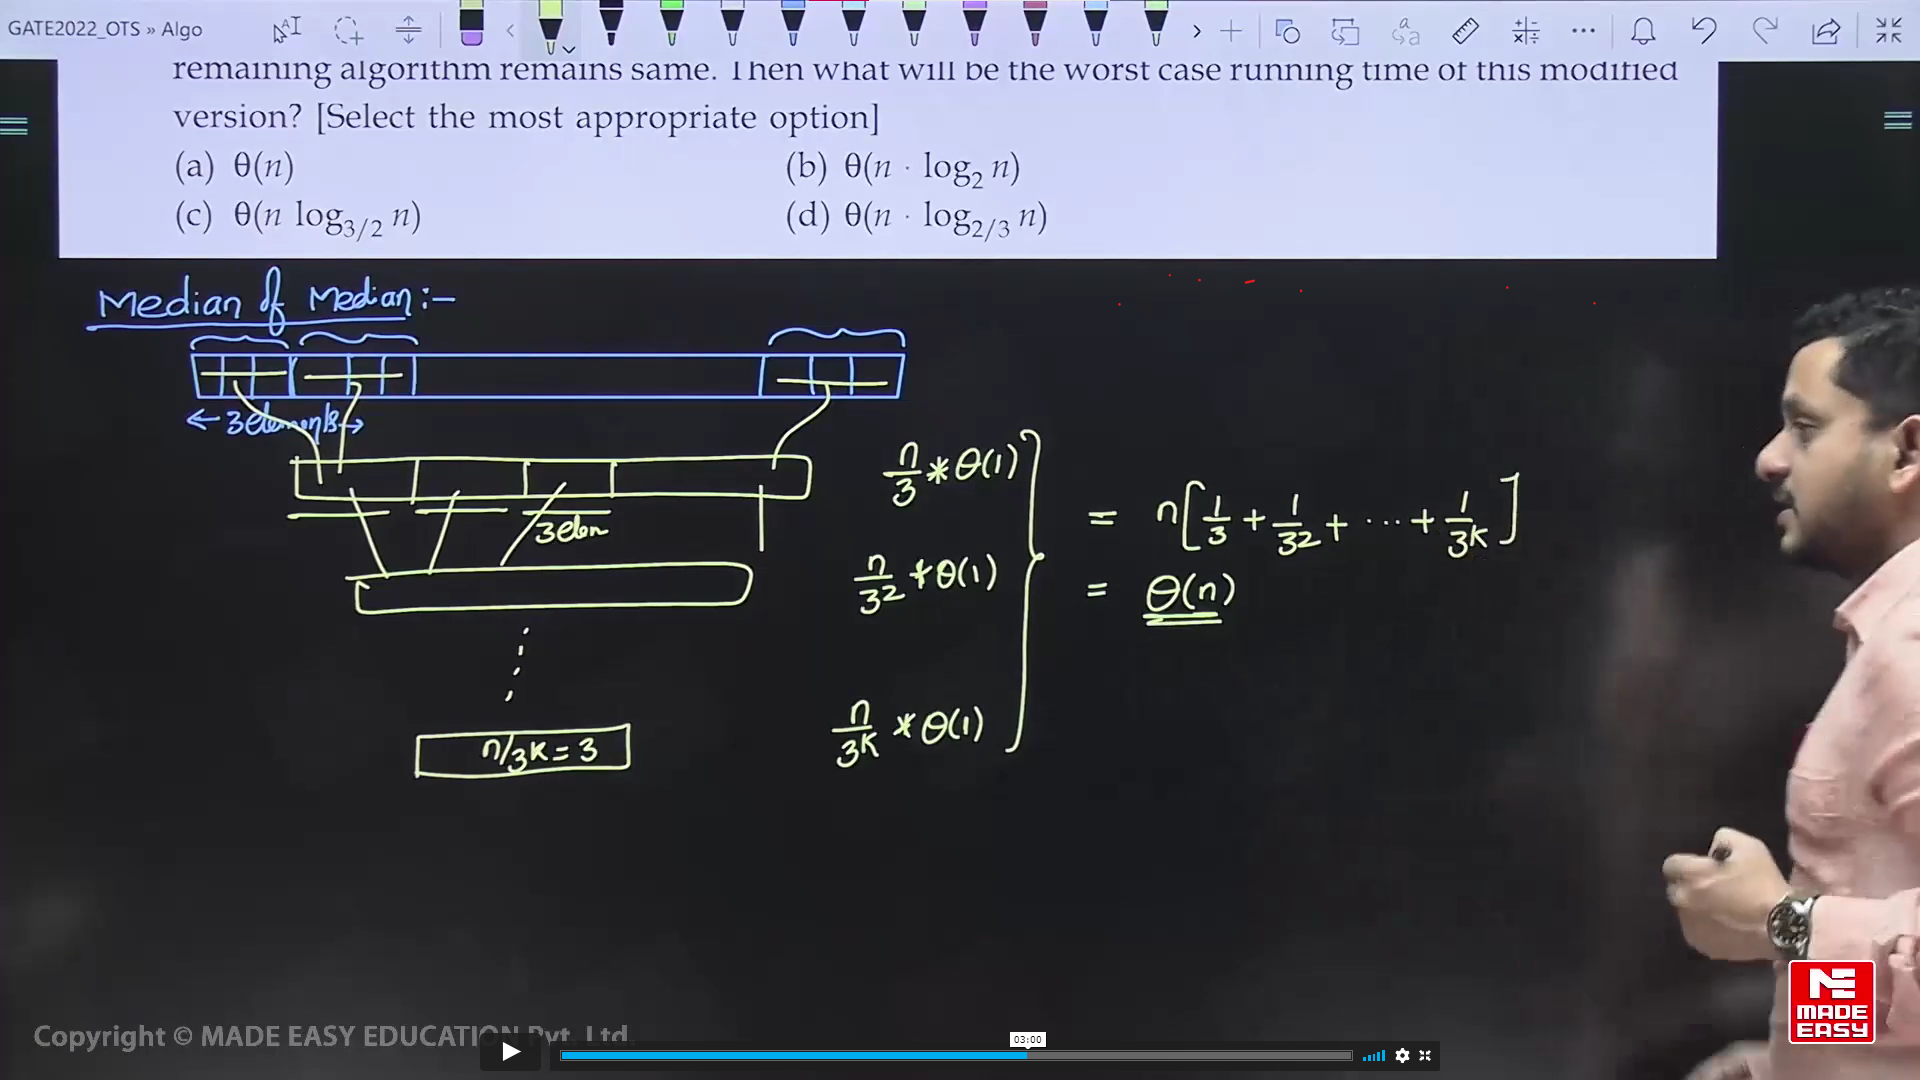 GATE2022_OTS » Algo
remaining algorithm remains same. Then what will be the worst case running time of this modified
version? [Select the most appropriate option]
(a) θ(n)
(b) θ(n · log₂ n)
(c) θ(n log₃/₂ n)
(d) θ(n · log₂/₃ n)
Median of Median :-
← 3 elements →
3 elem
n/3 * θ(1)
n/3² * θ(1)
n/3ᵏ * θ(1)
= n[1/3 + 1/3² + ... + 1/3ᵏ]
= θ(n)
n/3ᵏ = 3
Copyright © MADE EASY EDUCATION Pvt. Ltd.
03:00
ME
MADE
EASY